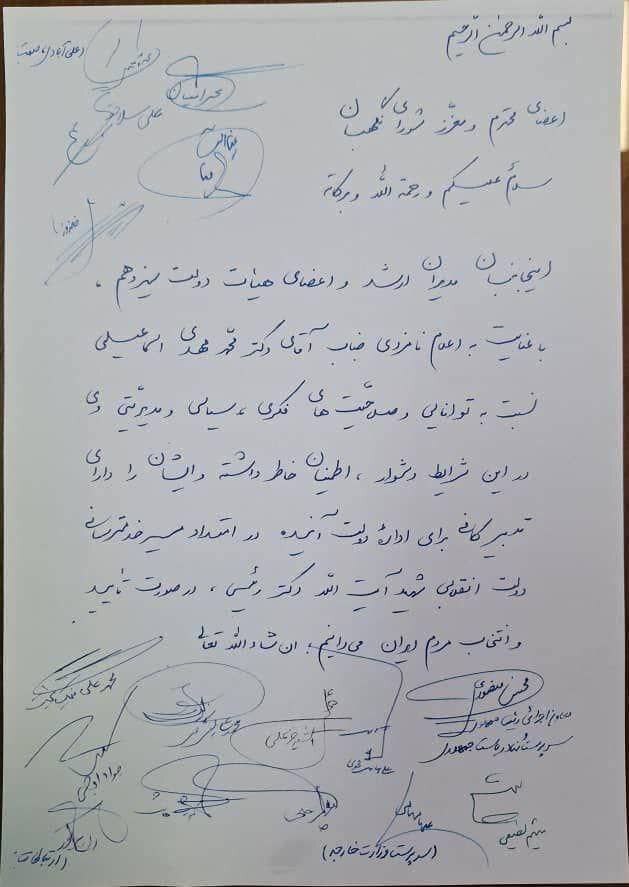 بسم الله الرحمن الرحیم
اعضای محترم و معزّز شورای نگهبان
سلامٌ علیکم و رحمة الله و برکاته
اینجانبان مدیران ارشد و اعضای هیأت دولت سیزدهم،
با عنایت به اعلام نامزدی جناب آقای دکتر محمّد مهدی اسماعیلی
نسبت به توانایی و صلاحیّت های فکری، سیاسی و مدیریّتی وی
در این شرایط دشوار، اطمینان خاطر داشته و ایشان را دارای
تدبیر کافی برای ادارهٔ دولت آینده در امتداد مسیر خدمترسانی
دولت انقلابی شهید آیت الله دکتر رئیسی، در صورت تأیید
و انتخاب مردم ایران می‌دانیم. ان شاء الله تعالی
محسن منصوری
معاون اجرائی رئیس جمهور
سرپرست نهاد ریاست جمهوری
میثم لطیفی
علی باقری
(سرپرست وزارت خارجه)
جواد اوجی
(ارتباطات)